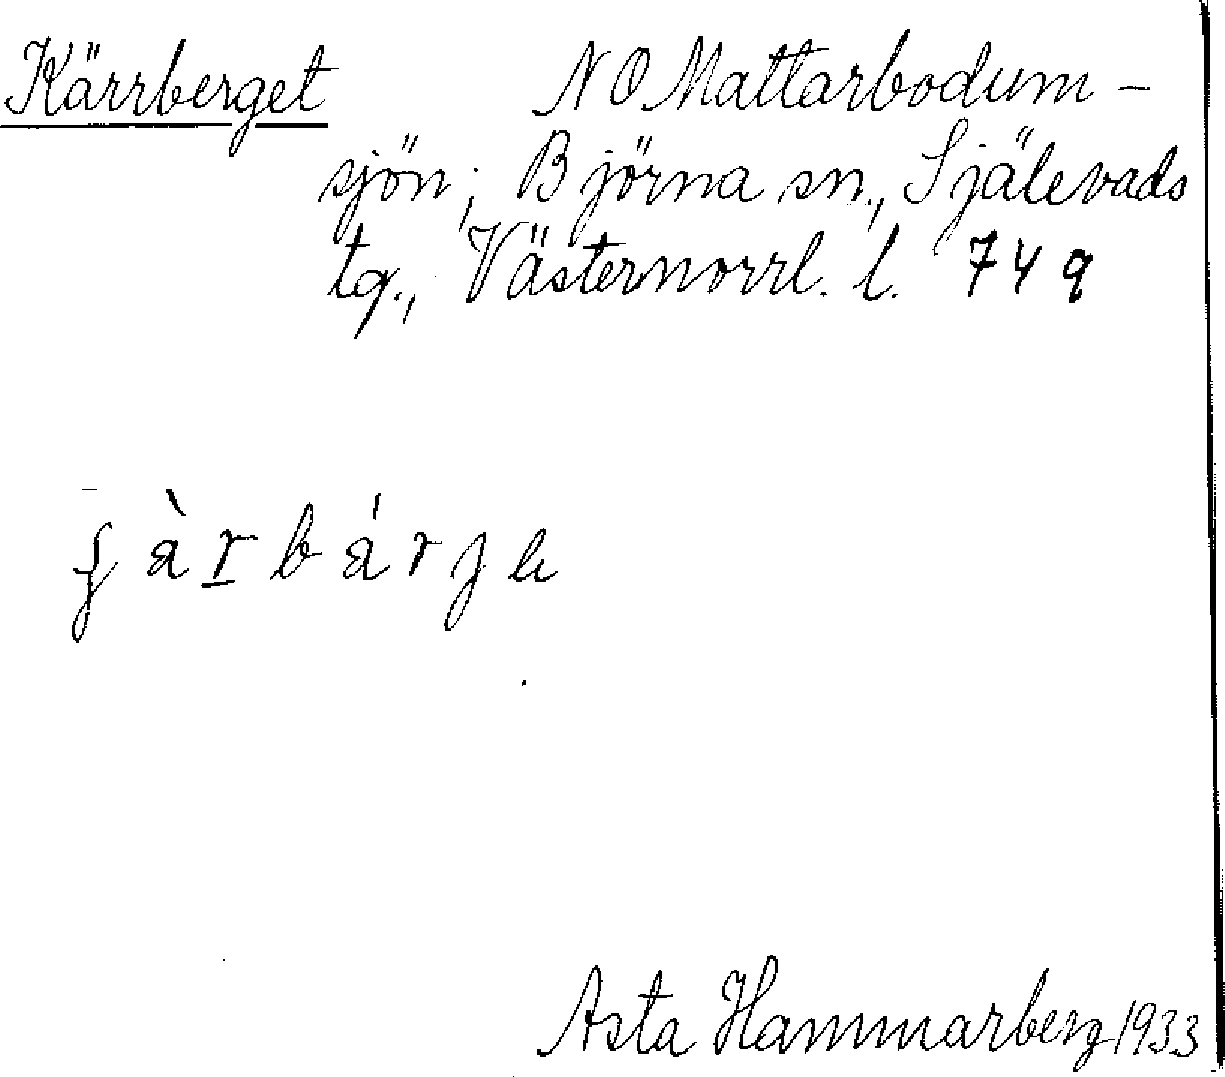 Kärrberget NO Mattarbodum-
sjön; Björna sn., Själevads
tg., Västernorrl. l. 74 q
Asta Hammarberg 1933